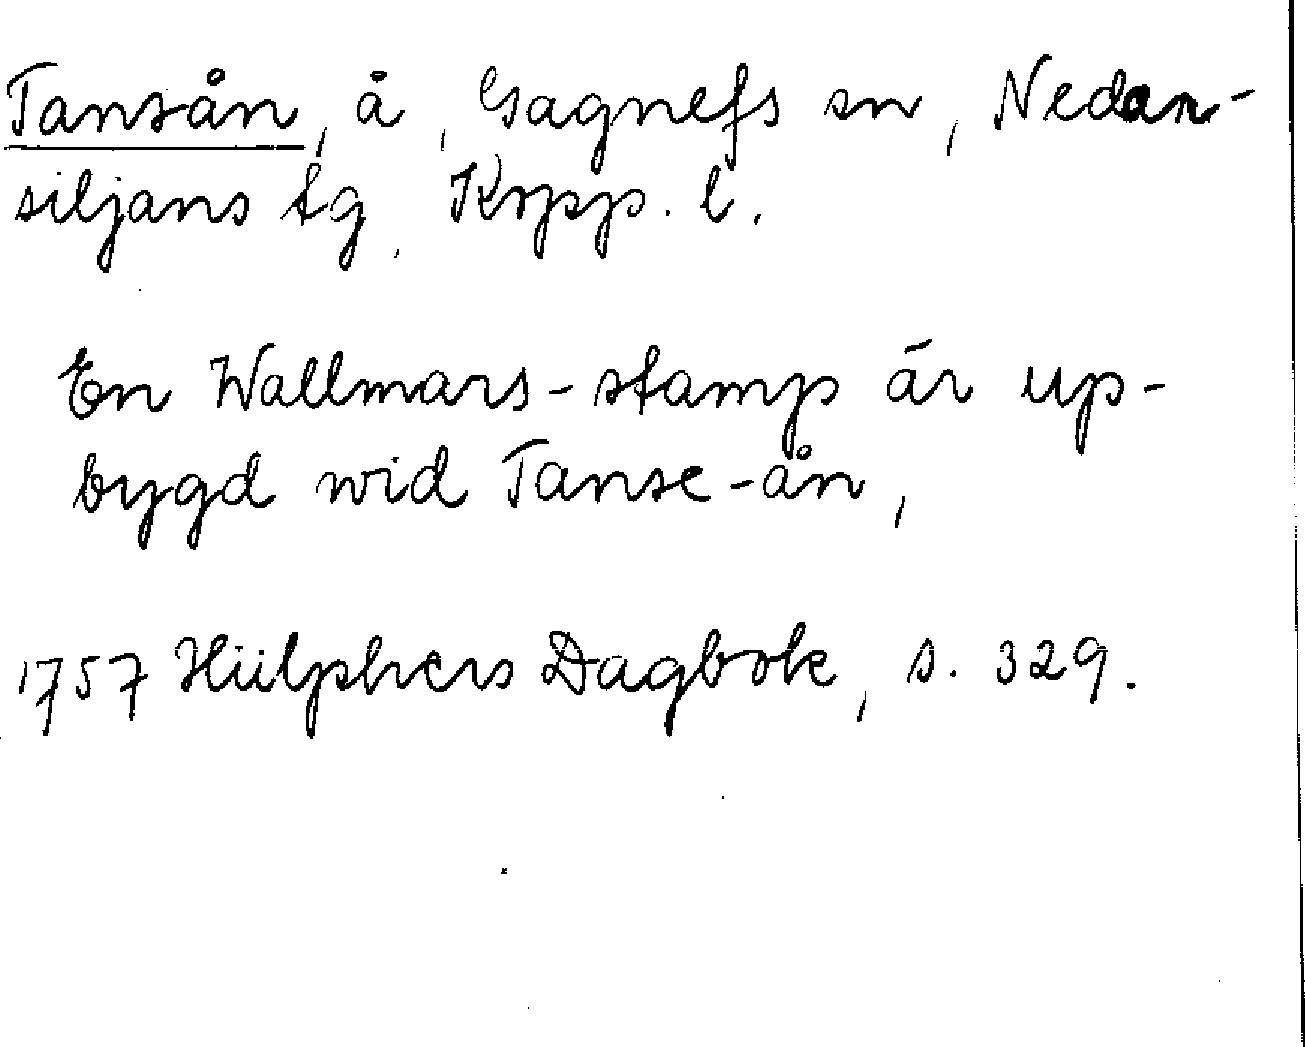 Tansån, å, Gagnefs sn, Nedan-
siljans tg, Kopp. l.
En Wallmars-stamp är up-
bygd wid Tanse-ån,
1757 Hülphers Dagbok, s. 329.